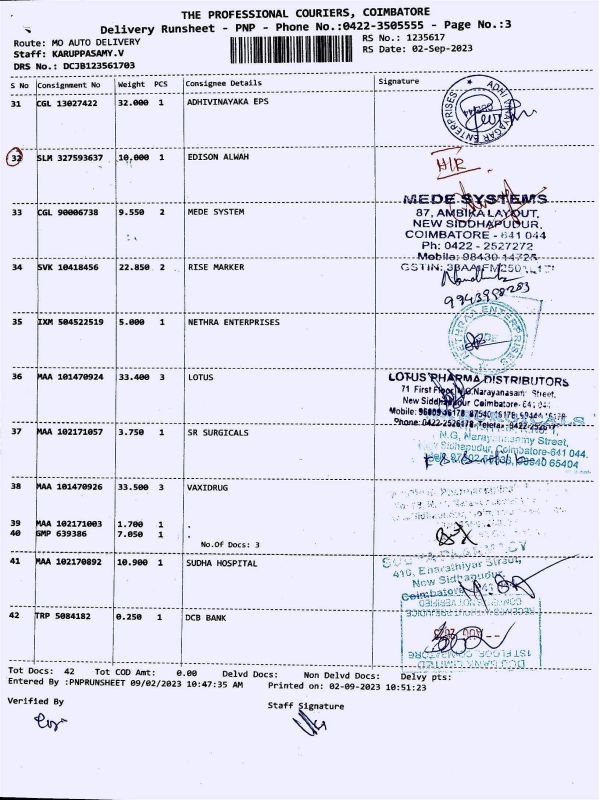 THE PROFESSIONAL COURIERS, COIMBATORE
Delivery Runsheet - PNP - Phone No.:0422-3505555 - Page No.:3
Route: MO AUTO DELIVERY RS No.: 1235617
Staff: KARUPPASAMY.V RS Date: 02-Sep-2023
DRS No.: DCJB123561703
S No Consignment No Weight PCS Consignee Details Signature
31 CGL 13027422 32.000 1 ADHIVINAYAKA EPS
ADHI VINAYAGAR ENTERPRISES
32 SLM 327593637 10.000 1 EDISON ALWAH
H/R
33 CGL 90006738 9.550 2 MEDE SYSTEM
MEDE SYSTEMS
87, AMBIKA LAYOUT,
NEW SIDDHAPUDUR,
COIMBATORE - 641 044
Ph: 0422 - 2527272
Mobile: 98430 14725
34 SVK 10418456 22.850 2 RISE MARKER
GSTIN:
35 IXM 504522519 5.000 1 NETHRA ENTERPRISES
NETHRAA ENTERPRISES
36 MAA 101470924 33.400 3 LOTUS
LOTUS PHARMA DISTRIBUTORS
71 First Floor, N.G.Narayanasami Street,
New Siddhapudur Coimbatore- 641 044
Phone: 0422-2526178
37 MAA 102171057 3.750 1 SR SURGICALS
N.G. Narayanasamy Street,
Sidhapudur, Coimbatore-641 044.
38 MAA 101470926 33.500 3 VAXIDRUG
39 MAA 102171003 1.700 1 .
40 GMP 639386 7.050 1 No.Of Docs: 3
41 MAA 102170892 10.900 1 SUDHA HOSPITAL
PHARMACY
410, Enarathiyar Street,
New Sidhapudur,
Coimbatore
42 TRP 5084182 0.250 1 DCB BANK
RECEIVED
CONTENTS NOT VERIFIED
AUG 2023
DCB BANK LIMITED
1ST FLOOR, COIMBATORE
Tot Docs: 42 Tot COD Amt: 0.00 Delvd Docs: Non Delvd Docs: Delvy pts:
Entered By :PNPRUNSHEET 09/02/2023 10:47:35 AM Printed on: 02-09-2023 10:51:23
Verified By Staff Signature